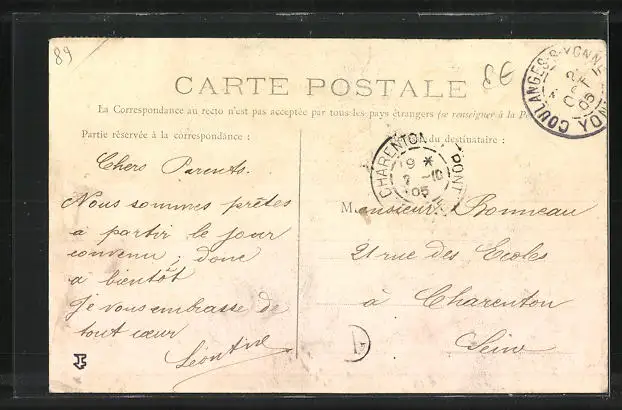 89
8E
CARTE POSTALE
La Correspondance au recto n'est pas acceptée par tous les pays étrangers (se renseigner à la
Partie réservée à la correspondance :
du destinataire :
COULANGES-S-YONNE
YONNE
05
CHARENTON
PONT
9 *
2 -10
05
Chers Parents.
Nous sommes prêtes
à partir le jour
convenu ; donc
a bientôt
Je vous embrasse de
tout cœur
Léontine
Monsieur Bonneau
21 rue des Ecoles
à Charenton
Seine